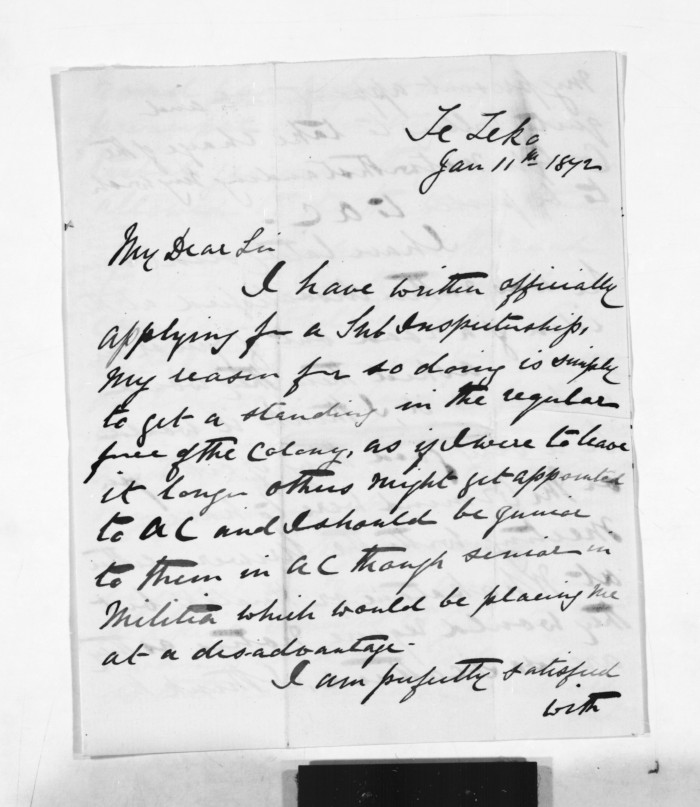 Te Teko
Jan 11th 1872
My Dear Sir
I have written officially
applying for a Sub Inspectorship,
my reason for so doing is simply
to get a standing in the regular
force of the Colony, as if I were to leave
it longer others might get appointed
to A C and I should be junior
to them in A C though senior in
Militia which would be placing me
at a disadvantage.
I am perfectly satisfied
with